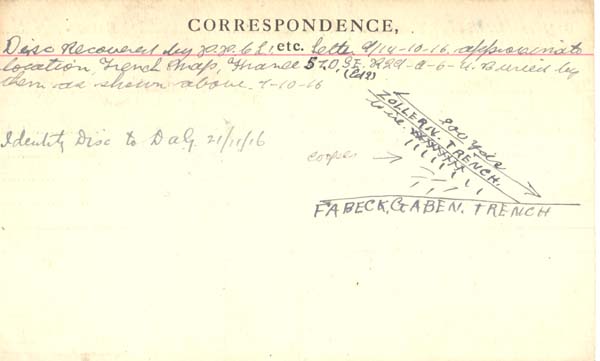 CORRESPONDENCE,
etc.
Disc Recovered by letter d/14-10-16. approximate
location, Trench Map, France 57.D, S.E.
(Ed 2)
Buried by
them as shown above. 7-10-16
Identity Disc to D a G 21/11/16
ZOLLERN. TRENCH.
Yds
corpses
FABECK, GABEN. TRENCH